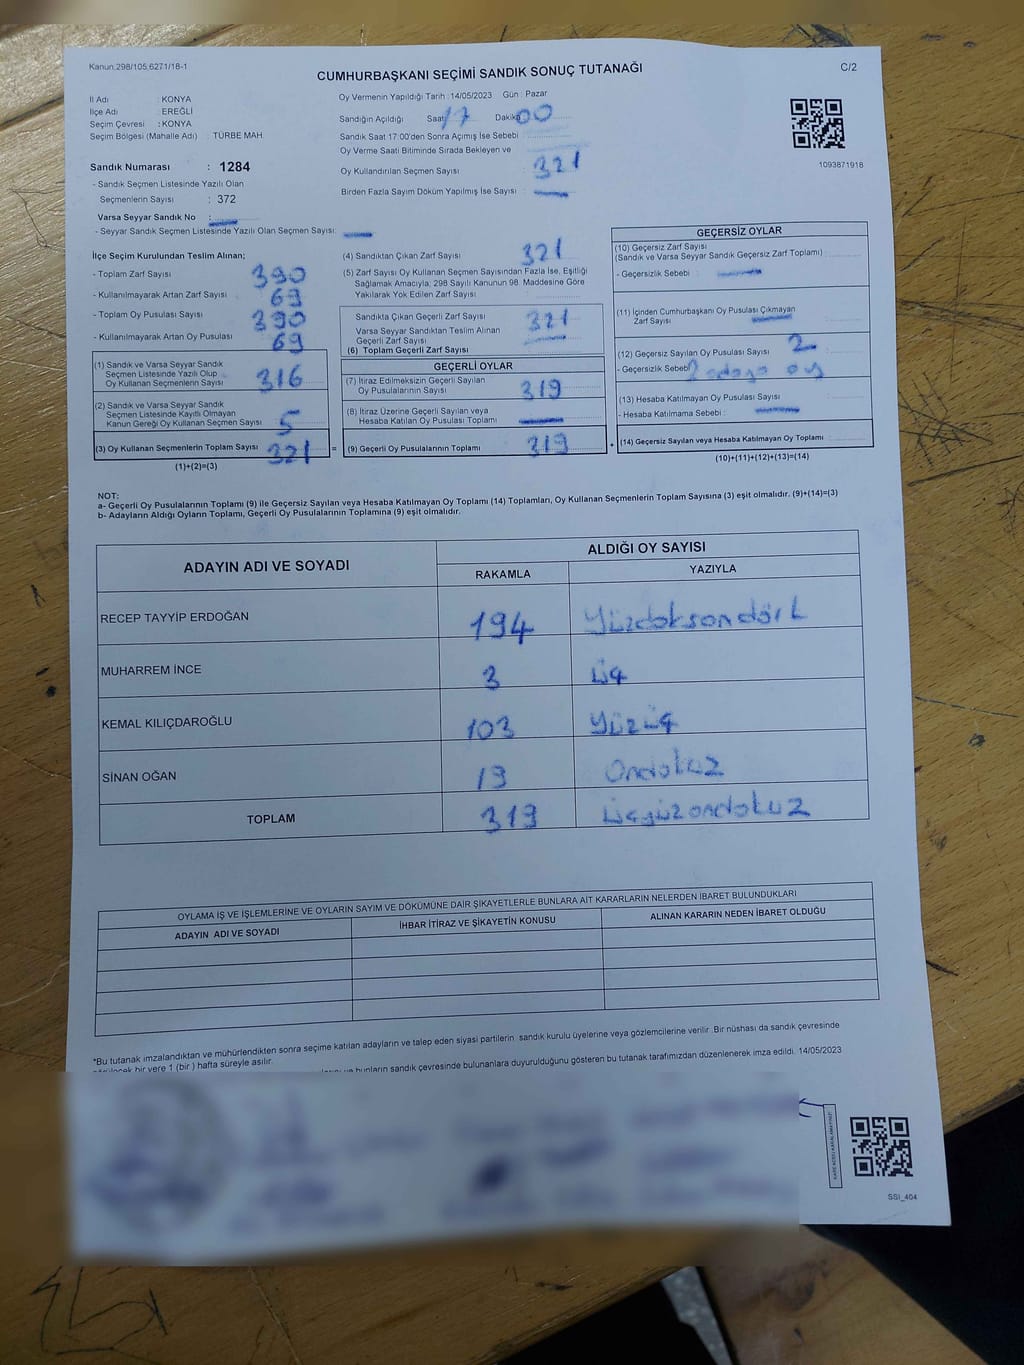 Kanun.298/105,6271/18-1
CUMHURBAŞKANI SEÇİMİ SANDIK SONUÇ TUTANAĞI
C/2
İl Adı : KONYA
İlçe Adı : EREĞLİ
Seçim Çevresi : KONYA
Seçim Bölgesi (Mahalle Adı) : TÜRBE MAH.
Sandık Numarası : 1284
- Sandık Seçmen Listesinde Yazılı Olan
Seçmenlerin Sayısı : 372
Varsa Seyyar Sandık No :
- Seyyar Sandık Seçmen Listesinde Yazılı Olan Seçmen Sayısı:
Oy Vermenin Yapıldığı Tarih :14/05/2023 Gün : Pazar
Sandığın Açıldığı Saat 17 Dakika 00
Sandık Saat 17:00'den Sonra Açımış İse Sebebi
Oy Verme Saati Bitiminde Sırada Bekleyen ve
Oy Kullandırılan Seçmen Sayısı : 321
Birden Fazla Sayım Döküm Yapılmış İse Sayısı :
1093871918
İlçe Seçim Kurulundan Teslim Alınan;
- Toplam Zarf Sayısı 390
- Kullanılmayarak Artan Zarf Sayısı 69
- Toplam Oy Pusulası Sayısı 390
- Kullanılmayarak Artan Oy Pusulası 69
(1) Sandık ve Varsa Seyyar Sandık
Seçmen Listesinde Yazılı Olup
Oy Kullanan Seçmenlerin Sayısı 316
(2) Sandık ve Varsa Seyyar Sandık
Seçmen Listesinde Kayıtlı Olmayan
Kanun Gereği Oy Kullanan Seçmen Sayısı 5
(3) Oy Kullanan Seçmenlerin Toplam Sayısı 321
(1)+(2)=(3)
(4) Sandıktan Çıkan Zarf Sayısı 321
(5) Zarf Sayısı Oy Kullanan Seçmen Sayısından Fazla İse, Eşitliği
Sağlamak Amacıyla; 298 Sayılı Kanunun 98. Maddesine Göre
Yakılarak Yok Edilen Zarf Sayısı :
Sandıkta Çıkan Geçerli Zarf Sayısı 321
Varsa Seyyar Sandıktan Teslim Alınan
Geçerli Zarf Sayısı
(6) Toplam Geçerli Zarf Sayısı
GEÇERLİ OYLAR
(7) İtiraz Edilmeksizin Geçerli Sayılan
Oy Pusulalarının Sayısı 319
(8) İtiraz Üzerine Geçerli Sayılan veya
Hesaba Katılan Oy Pusulası Toplamı
= (9) Geçerli Oy Pusulalarının Toplamı 319
GEÇERSİZ OYLAR
(10) Geçersiz Zarf Sayısı
(Sandık ve Varsa Seyyar Sandık Geçersiz Zarf Toplamı) :
- Geçersizlik Sebebi :
(11) İçinden Cumhurbaşkanı Oy Pusulası Çıkmayan
Zarf Sayısı
(12) Geçersiz Sayılan Oy Pusulası Sayısı 2
- Geçersizlik Sebebi 2 adaya oy
(13) Hesaba Katılmayan Oy Pusulası Sayısı
- Hesaba Katılmama Sebebi :
+ (14) Geçersiz Sayılan veya Hesaba Katılmayan Oy Toplamı
(10)+(11)+(12)+(13)=(14)
NOT:
a- Geçerli Oy Pusulalarının Toplamı (9) ile Geçersiz Sayılan veya Hesaba Katılmayan Oy Toplamı (14) Toplamları, Oy Kullanan Seçmenlerin Toplam Sayısına (3) eşit olmalıdır. (9)+(14)=(3)
b- Adayların Aldığı Oyların Toplamı, Geçerli Oy Pusulalarının Toplamına (9) eşit olmalıdır.
ADAYIN ADI VE SOYADI ALDIĞI OY SAYISI
RAKAMLA YAZIYLA
RECEP TAYYİP ERDOĞAN 194 Yüzdoksandört
MUHARREM İNCE 3 Üç
KEMAL KILIÇDAROĞLU 103 Yüzüç
SİNAN OĞAN 19 Ondokuz
TOPLAM 319 Üçyüzondokuz
OYLAMA İŞ VE İŞLEMLERİNE VE OYLARIN SAYIM VE DÖKÜMÜNE DAİR ŞİKAYETLERLE BUNLARA AİT KARARLARIN NELERDEN İBARET BULUNDUKLARI
ADAYIN ADI VE SOYADI İHBAR İTİRAZ VE ŞİKAYETİN KONUSU ALINAN KARARIN NEDEN İBARET OLDUĞU
*Bu tutanak imzalandıktan ve mühürlendikten sonra seçime katılan adayların ve talep eden siyasi partilerin sandık kurulu üyelerine veya gözlemcilerine verilir. Bir nüshası da sandık çevresinde
bir yere 1 (bir ) hafta süreyle asılır.
bunların sandık çevresinde bulunanlara duyurulduğunu gösteren bu tutanak tarafımızdan düzenlenerek imza edildi. 14/05/2023
SSI_404